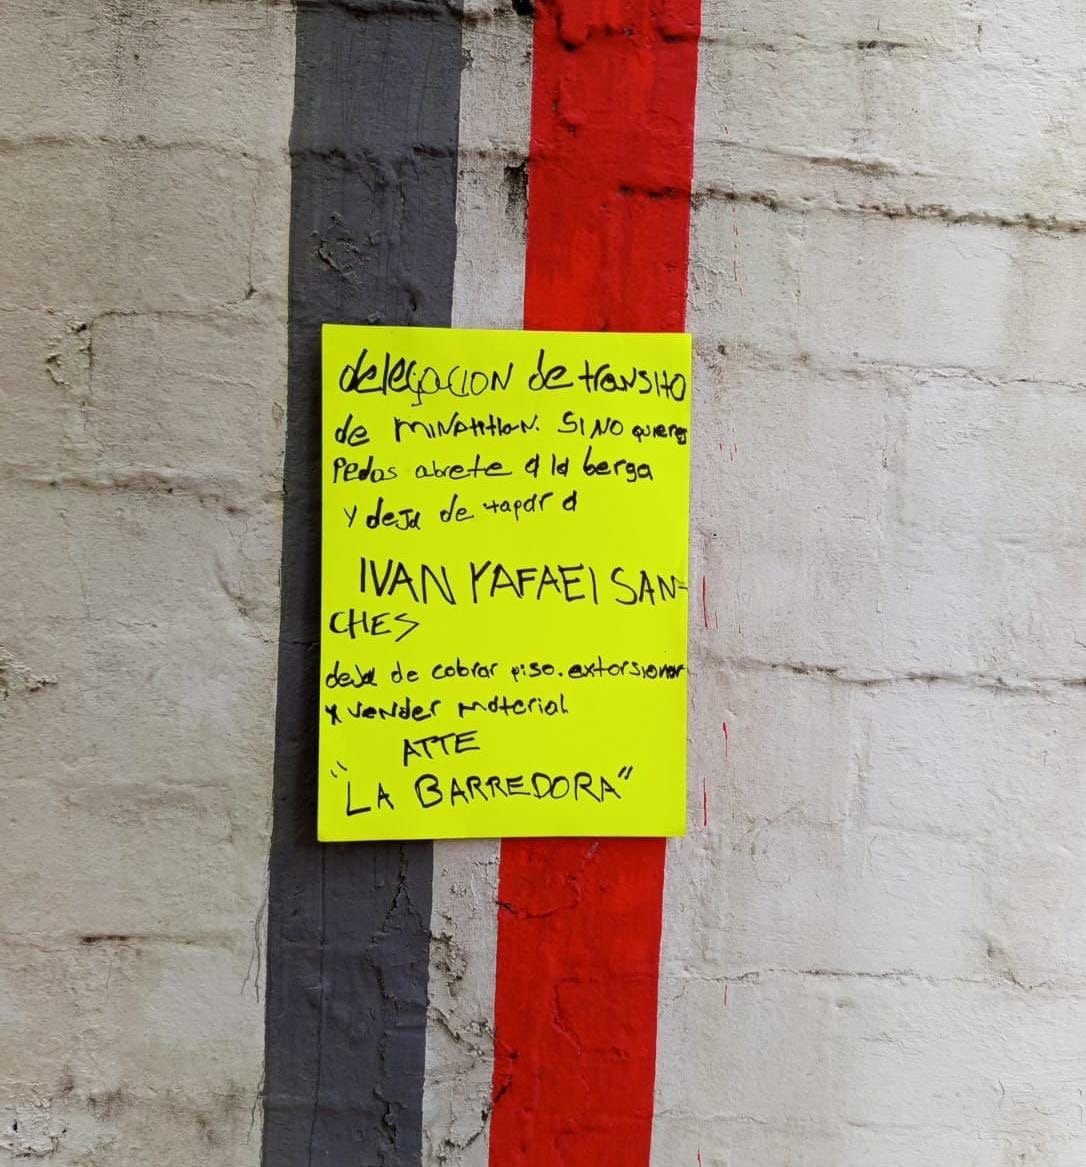 delegacion de transito
de minatitlan. SI NO quieres
Pedos abrete a la berga
y deja de tapar a
IVAN RAFAEl SAN-
CHES
deja de cobrar piso. extorsionar
y vender material
ATTE
"LA BARREDORA"